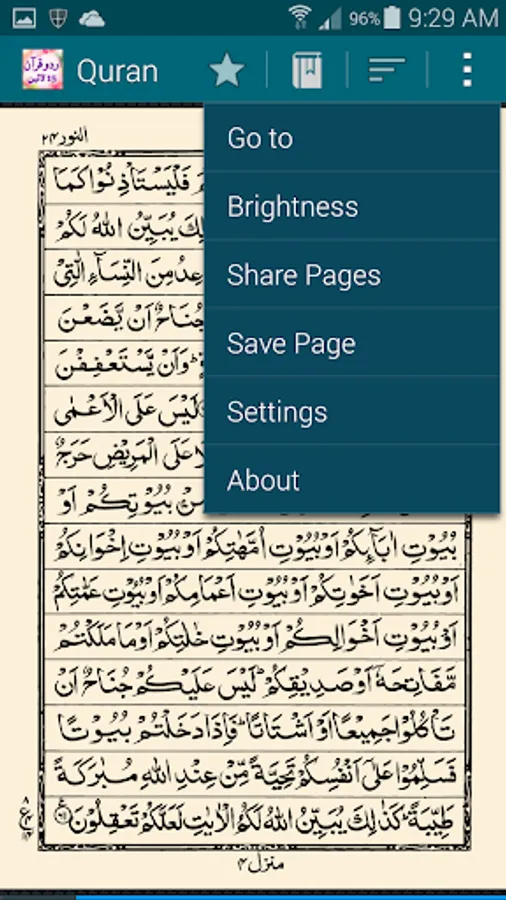 96% 9:29 AM
اردو قرآن
15 لائین
Quran
Go to
Brightness
Share Pages
Save Page
Settings
About
النور ٢٤
فَلْيَسْتَاْذِنُوْا كَمَا
يُبَيِّنُ اللّٰهُ لَكُمْ
مِنَ النِّسَآءِ الّٰتِيْ
جُنَاحٌ اَنْ يَّضَعْنَ
وَاَنْ يَّسْتَعْفِفْنَ
لَيْسَ عَلَى الْاَعْمٰى
عَلَى الْمَرِيْضِ حَرَجٌ
بُيُوْتِكُمْ اَوْ
بُيُوْتِ اٰبَآئِكُمْ اَوْ بُيُوْتِ اُمَّهٰتِكُمْ اَوْ بُيُوْتِ اِخْوَانِكُمْ
اَوْ بُيُوْتِ اَخَوٰتِكُمْ اَوْ بُيُوْتِ اَعْمَامِكُمْ اَوْ بُيُوْتِ عَمّٰتِكُمْ
اَوْ بُيُوْتِ اَخْوَالِكُمْ اَوْ بُيُوْتِ خٰلٰتِكُمْ اَوْ مَا مَلَكْتُمْ
مَّفَاتِحَهٗۤ اَوْ صَدِيْقِكُمْ ؕ لَيْسَ عَلَيْكُمْ جُنَاحٌ اَنْ
تَاْكُلُوْا جَمِيْعًا اَوْ اَشْتَاتًا ؕ فَاِذَا دَخَلْتُمْ بُيُوْتًا
فَسَلِّمُوْا عَلٰۤى اَنْفُسِكُمْ تَحِيَّةً مِّنْ عِنْدِ اللّٰهِ مُبٰرَكَةً
طَيِّبَةً ؕ كَذٰلِكَ يُبَيِّنُ اللّٰهُ لَكُمُ الْاٰيٰتِ لَعَلَّكُمْ تَعْقِلُوْنَ
منزل ٤